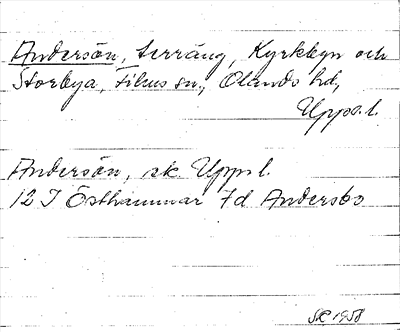 Andersön, terräng, Kyrkbyn och
Storbya, Films sn., Olands hd,
Upps.l.
Andersön, ek. Upps l.
12 I Östhammar 7d Andersbo
1958